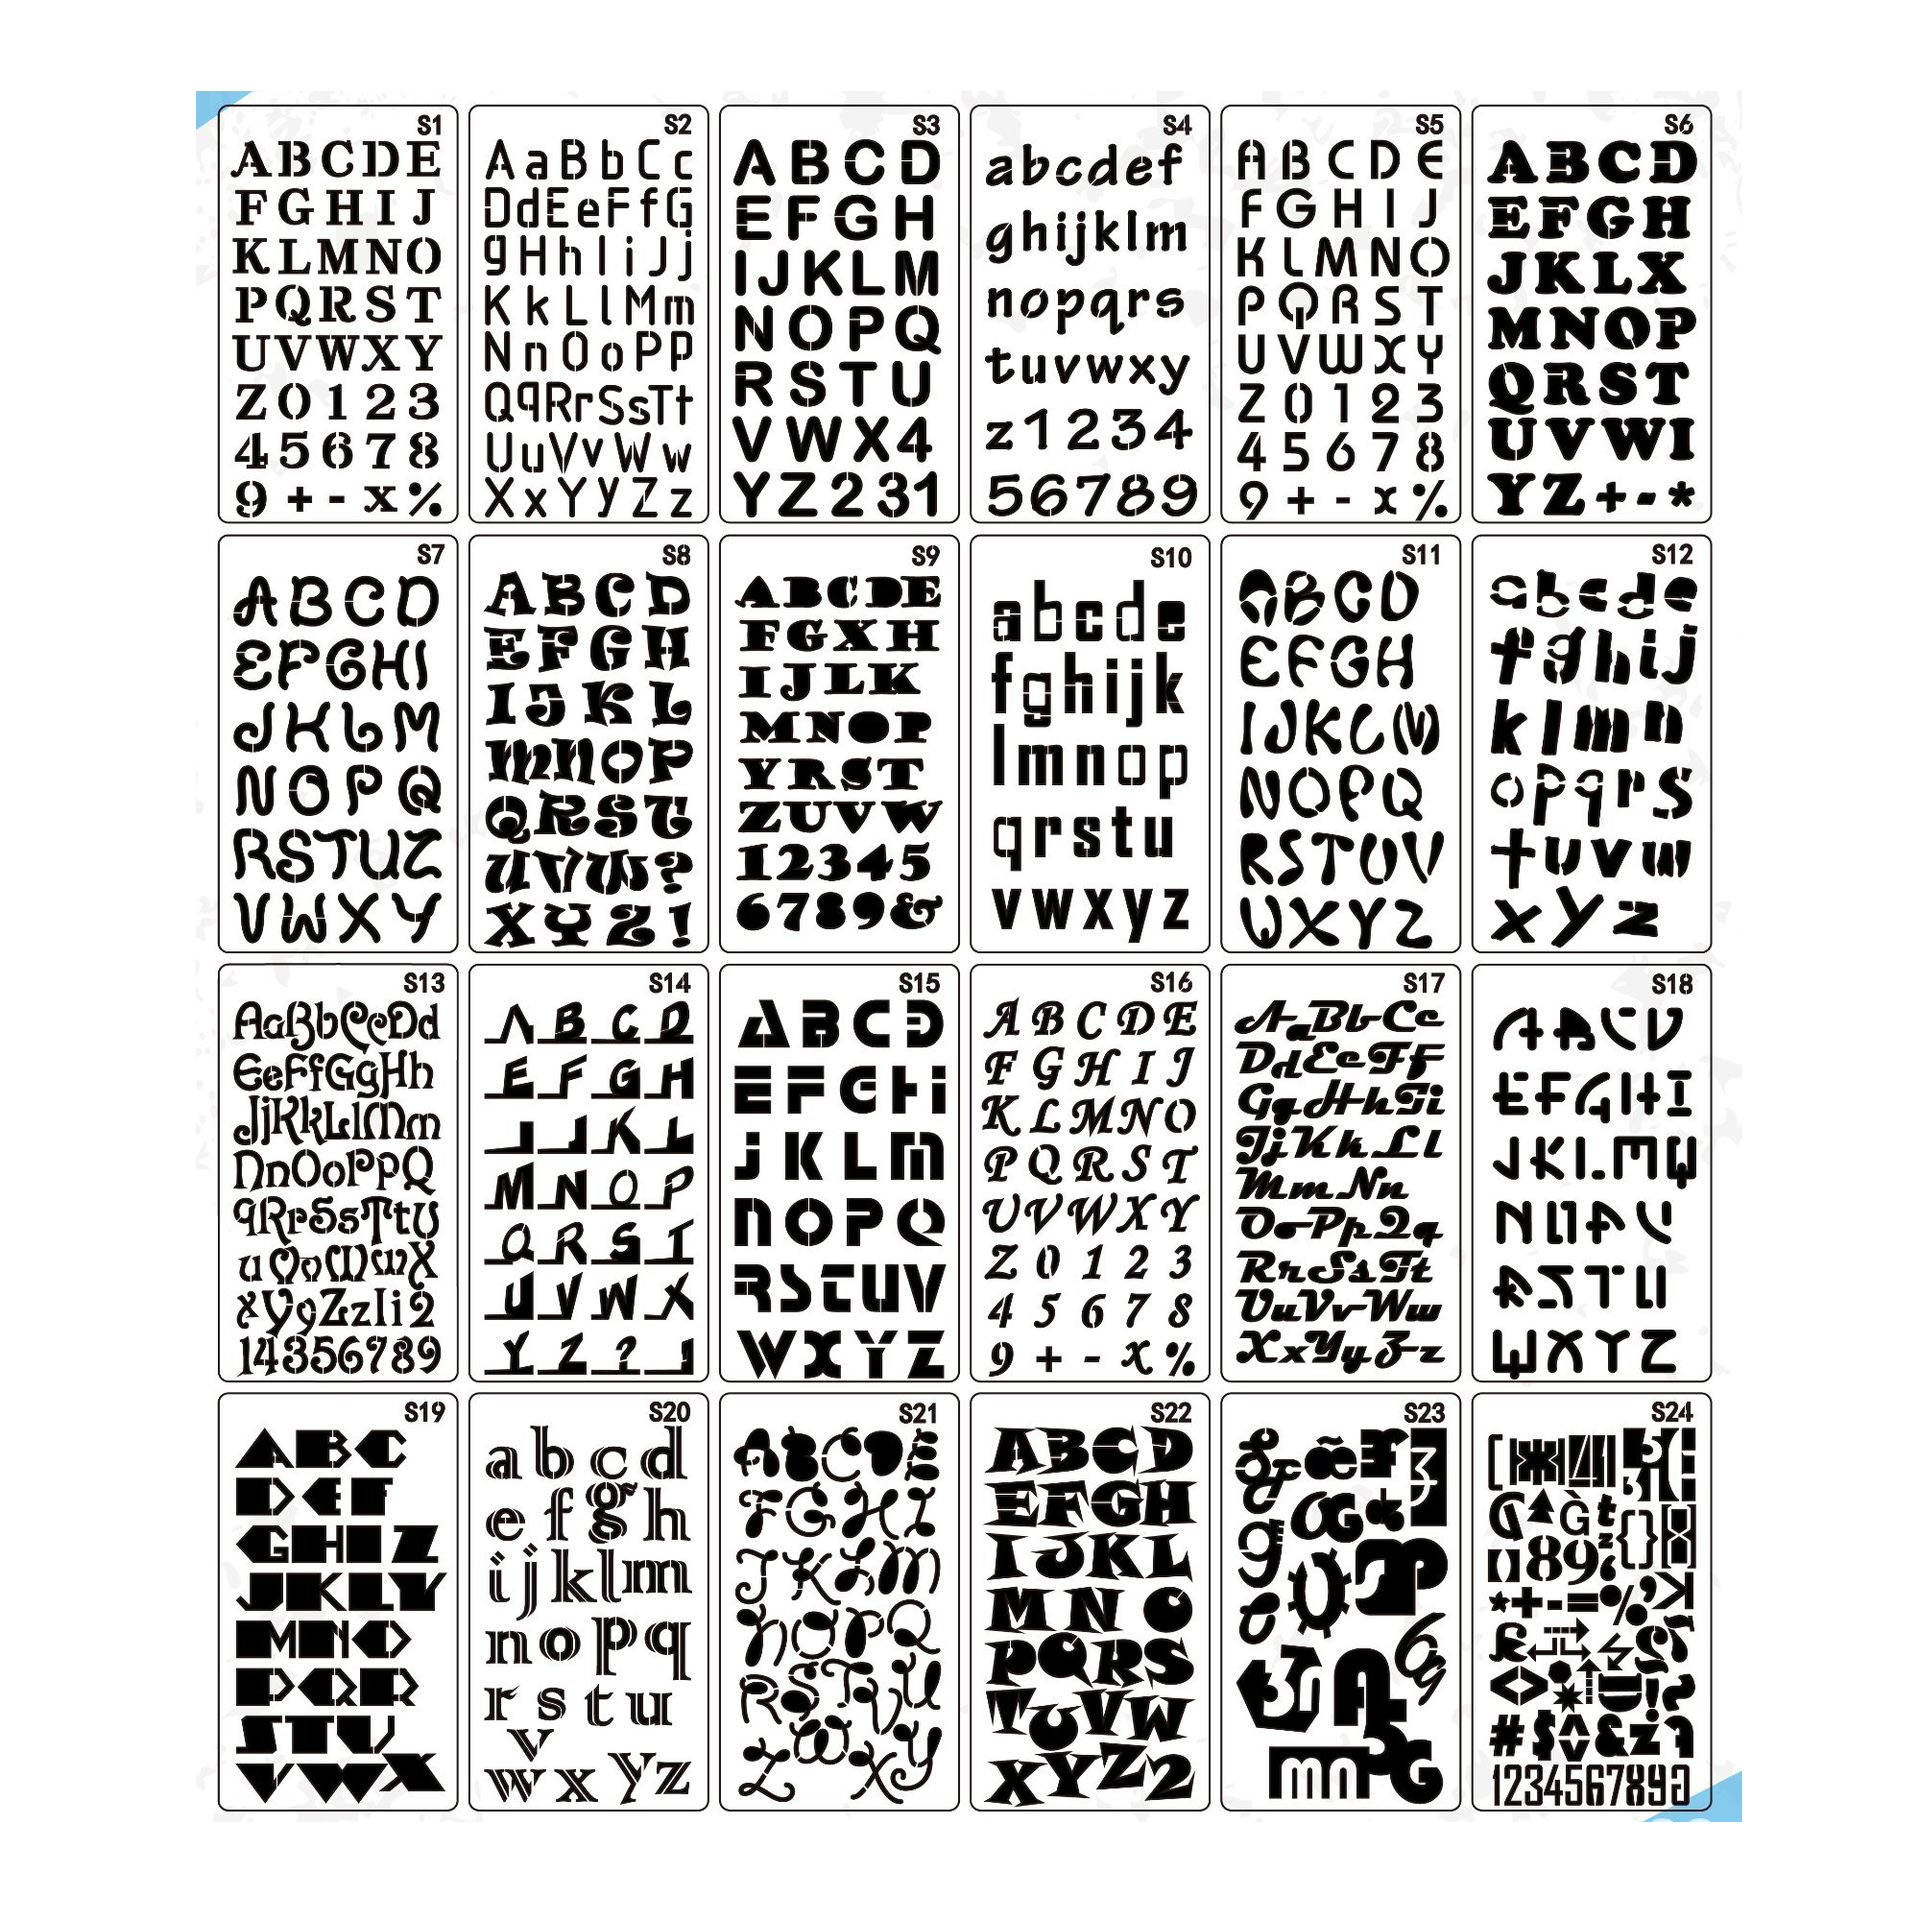 S1
A B C D E
F G H I J
K L M N O
P Q R S T
U V W X Y
Z 0 1 2 3
4 5 6 7 8
9 + - x %
S2
A a B b C c
D d E e F f G
g H h I i J j
K k L l M m
N n O o P p
Q q R r S s T t
U u V v W w
X x Y y Z z
S3
A B C D
E F G H
I J K L M
N O P Q
R S T U
V W X 4
Y Z 2 3 1
S4
a b c d e f
g h i j k l m
n o p q r s
t u v w x y
z 1 2 3 4
5 6 7 8 9
S5
A B C D E
F G H I J
K L M N O
P Q R S T
U V W X Y
Z 0 1 2 3
4 5 6 7 8
9 + - x %
S6
A B C D
E F G H
J K L X
M N O P
Q R S T
U V W I
Y Z + - *
S7
A B C D
E F G H I
J K L M
N O P Q
R S T U Z
V W X Y
S8
A B C D
E F G H
I J K L
M N O P
Q R S T
U V W ?
X Y Z !
S9
A B C D E
F G X H
I J L K
M N O P
Y R S T
Z U V W
1 2 3 4 5
6 7 8 9 &
S10
a b c d e
f g h i j k
l m n o p
q r s t u
v w x y z
S11
A B C D
E F G H
I J K L M
N O P Q
R S T U V
W X Y Z
S12
a b c d e
f g h i j
k l m n
o p q r s
t u v w
x y z
S13
A a B b C c D d
E e F f G g H h
J j K k L l M m
N n O o P p Q
q R r S s T t U
u V v W w X
x Y y Z z I i 2
1 4 3 5 6 7 8 9
S14
A B C D
E F G H
I J K L
M N O P
Q R S T
U V W X
Y Z ? !
S15
A B C D
E F G H i
j K L M
N O P Q
R S T U V
W X Y Z
S16
A B C D E
F G H I J
K L M N O
P Q R S T
U V W X Y
Z 0 1 2 3
4 5 6 7 8
9 + - x %
S17
A a B b C c
D d E e F f
G g H h I i
J j K k L l
M m N n
O o P p Q q
R r S s T t
U u V v W w
X x Y y Z z
S18
A B C D
E F G H I
J K L M Q
N O P U
R S T U
W X Y Z
S19
A B C
D E F
G H I Z
J K L Y
M N O
P Q R
S T U
V W X
S20
a b c d
e f g h
i j k l m
n o p q
r s t u
v
w x y z
S21
A B C D E
F G H I
J K L M
N O P Q
R S T V U
Z W X Y
S22
A B C D
E F G H
I J K L
M N O
P Q R S
T U V W
X Y Z 2
S23
S24
1 2 3 4 5 6 7 8 9